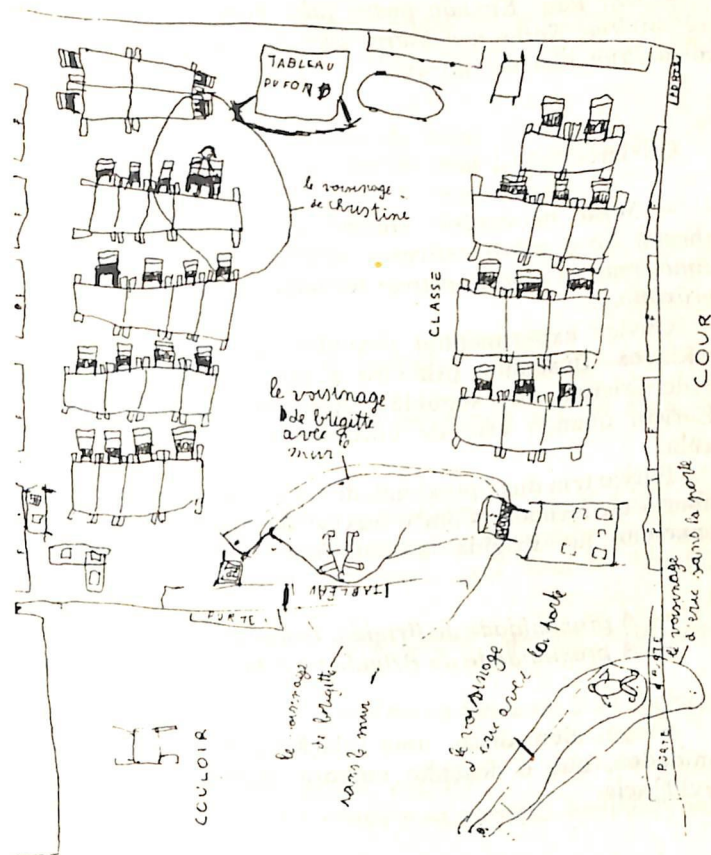 TABLEAU
DU FOND
PORTE
le voisinage
de christine
CLASSE
COUR
le voisinage
de brigitte
avec le
mur
TABLEAU
PORTE
le voisinage
de brigitte
sans le mur
le voisinage
d'eric avec la porte
le voisinage
d'eric sans la porte
PORTE
PORTE
COULOIR